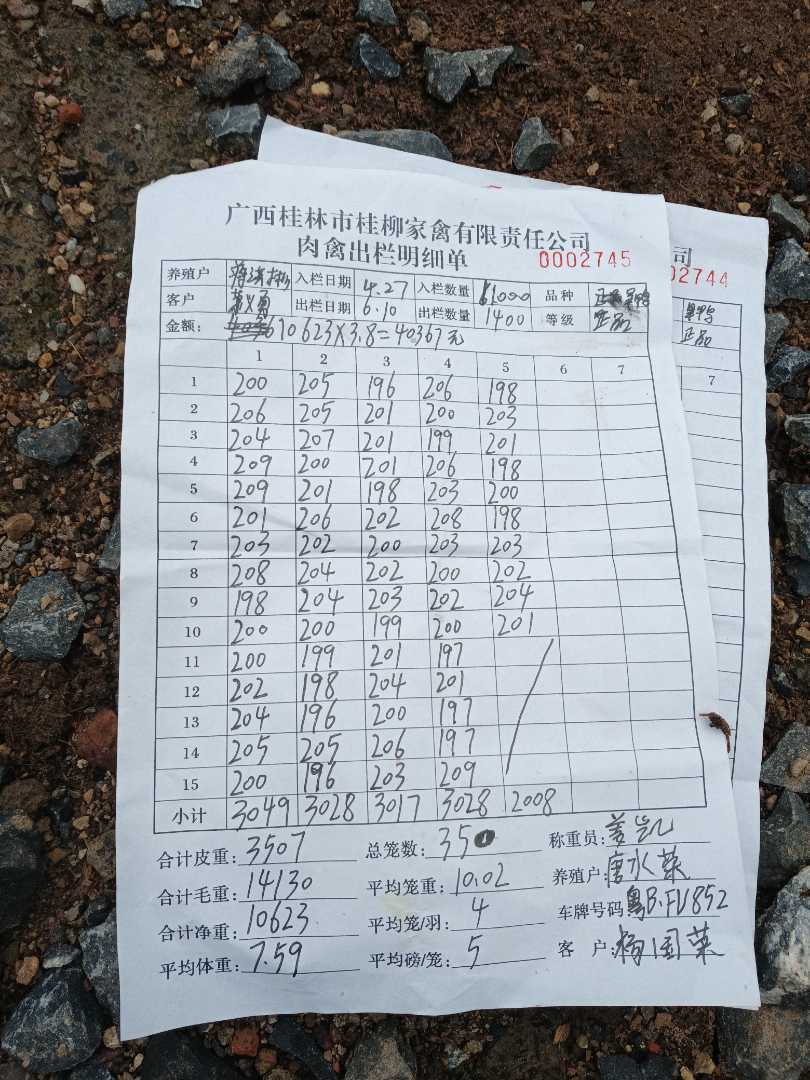 广西桂林市桂柳家禽有限责任公司
肉禽出栏明细单 0002745
司
02744
养殖户 入栏日期 4.27 入栏数量 61000 品种 正品
客户 出栏日期 6.10 出栏数量 1400 等级 正品
正品
金额: 10623×3.8=40367元
1 2 3 4 5 6 7
7
1 200 205 196 206 198
2 206 205 201 200 203
3 204 207 201 199 201
4 209 200 201 206 198
5 209 201 198 203 200
6 201 206 202 208 198
7 203 202 200 203 203
8 208 204 202 200 202
9 198 204 203 202 204
10 200 200 199 200 201
11 200 199 201 197
12 202 198 204 201
13 204 196 200 197
14 205 205 206 197
15 200 196 203 209
小计 3049 3028 3017 3028 2008
合计皮重: 3507 总笼数: 350 称重员: 姜凯
合计毛重: 14130 平均笼重: 10.02 养殖户: 唐水英
合计净重: 10623 平均笼/羽: 4 车牌号码: 粤B·FV852
平均体重: 7.59 平均磅/笼: 5 客 户: 杨国英